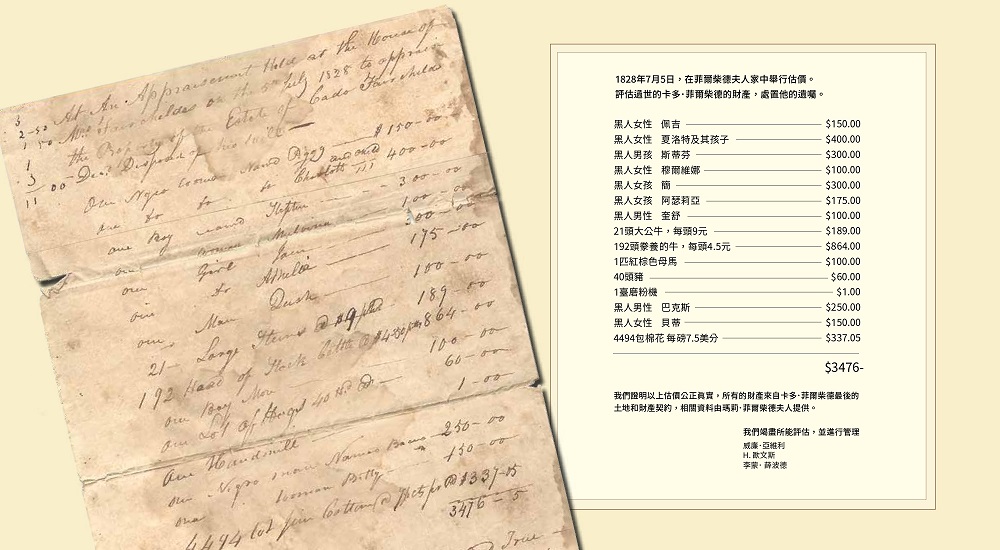 At An Appraisement Held at the House of
Mrs Fairchildes on the 5th July 1828 to appraise
the Property of the Estate of Cado Fairchilds
Dec. Disposed of
One Negro Woman Named Peggy $150-00
do to Charlotte and child 400-00
one Boy named Stephen 300-00
one woman Melvina 100-00
one Girl Jane 300-00
one do Athelia 175-00
one Man Dush 100-00
21- Large Steers @ $9 189-00
192 Head of Stock Cattle @ $4.50 864-00
one Bay Mare 100-00
one Lot of Hogs 40 Hd @ 60-00
One Handmill 1-00
one Negro man Names Bacus 250-00
one woman Betty 150-00
4494 Cotton @ $337-05
3476-5
True
1828年7月5日，在菲爾柴德夫人家中舉行估價。
評估過世的卡多·菲爾柴德的財產，處置他的遺囑。
黑人女性 佩吉 $150.00
黑人女性 夏洛特及其孩子 $400.00
黑人男孩 斯蒂芬 $300.00
黑人女性 穆爾維娜 $100.00
黑人女孩 簡 $300.00
黑人女孩 阿瑟莉亞 $175.00
黑人男性 奎舒 $100.00
21頭大公牛，每頭9元 $189.00
192頭豢養的牛，每頭4.5元 $864.00
1匹紅棕色母馬 $100.00
40頭豬 $60.00
1臺磨粉機 $1.00
黑人男性 巴克斯 $250.00
黑人女性 貝蒂 $150.00
4494包棉花 每磅7.5美分 $337.05
$3476-
我們證明以上估價公正真實，所有的財產來自卡多·菲爾柴德最後的
土地和財產契約，相關資料由瑪莉·菲爾柴德夫人提供。
我們竭盡所能評估，並進行管理
威廉·亞維利
H. 歐文斯
李蒙· 薛波德